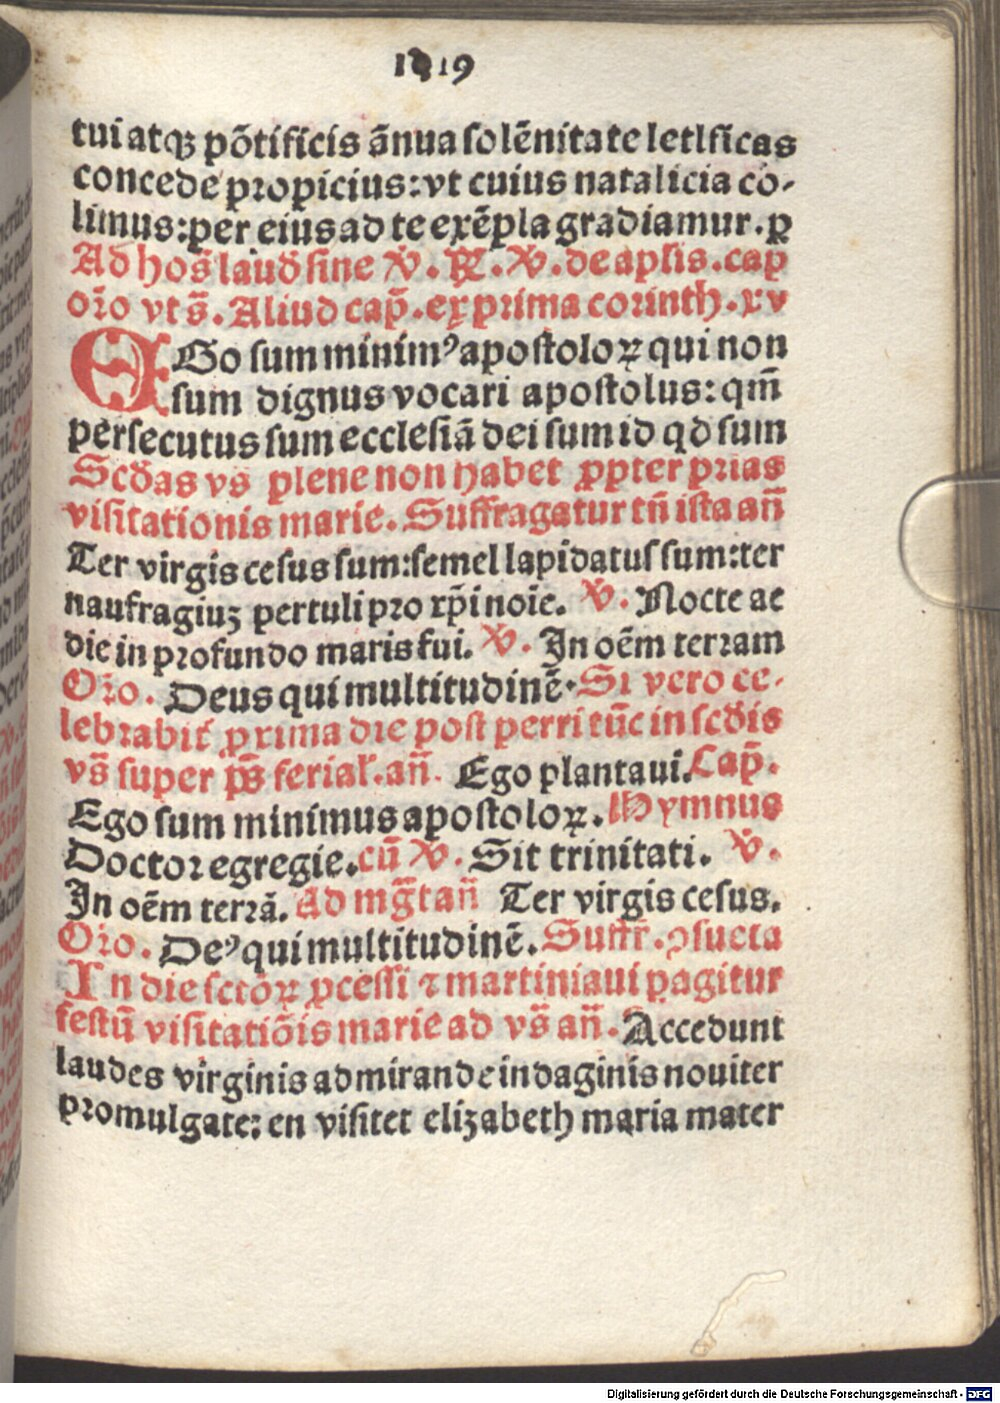 1819
tui atqꝫ põtificis ãnua solẽnitate letificas
concede propicius: vt cuius natalicia co-
limus: per eius ad te exẽpla gradiamur. ꝑ
Ad hoꝛ̃ laud̃ sine ℣. ℟. ℣. de aplis. cap̃
oꝛ̃o vt s̃. Aliud cap̃. ex prima corinth. xv
EGo sum minimꝰ apostoloꝝ qui non
sum dignus vocari apostolus: qm̃
persecutus sum ecclesiã dei sum id qd sum
Scd̃as vs plene non habet ꝓpter prias
visitationis marie. Suffragatur tñ ista añ
Ter virgis cesus sum: semel lapidatus sum: ter
naufragiuꝫ pertuli pro xp̃i noie. ℣. Nocte ac
die in profundo maris fui. ℣. In oẽm terram
Oꝛ̃o. Deus qui multitudinẽ. Si vero ce-
lebrabit̃ ꝓxima die post perri tũc in scd̃is
vs̃ super ps̃ ferial̃. añ. Ego plantaui. Cap̃.
Ego sum minimus apostoloꝝ. Hymnus
Doctor egregie. cũ ℣. Sit trinitati. ℣.
In oẽm terrã. Ad mg̃t añ Ter virgis cesus.
Oꝛ̃o. Deꝰ qui multitudinẽ. Suffr̃. ꝯsueta
In die sctõꝝ ꝓcessi ⁊ martiniaui ꝑagitur
festũ visitatiõis marie ad vs̃ añ. Accedunt
laudes virginis admirande indaginis nouiter
promulgate: en visitet elizabeth maria mater
Digitalisierung gefördert durch die Deutsche Forschungsgemeinschaft - DFG